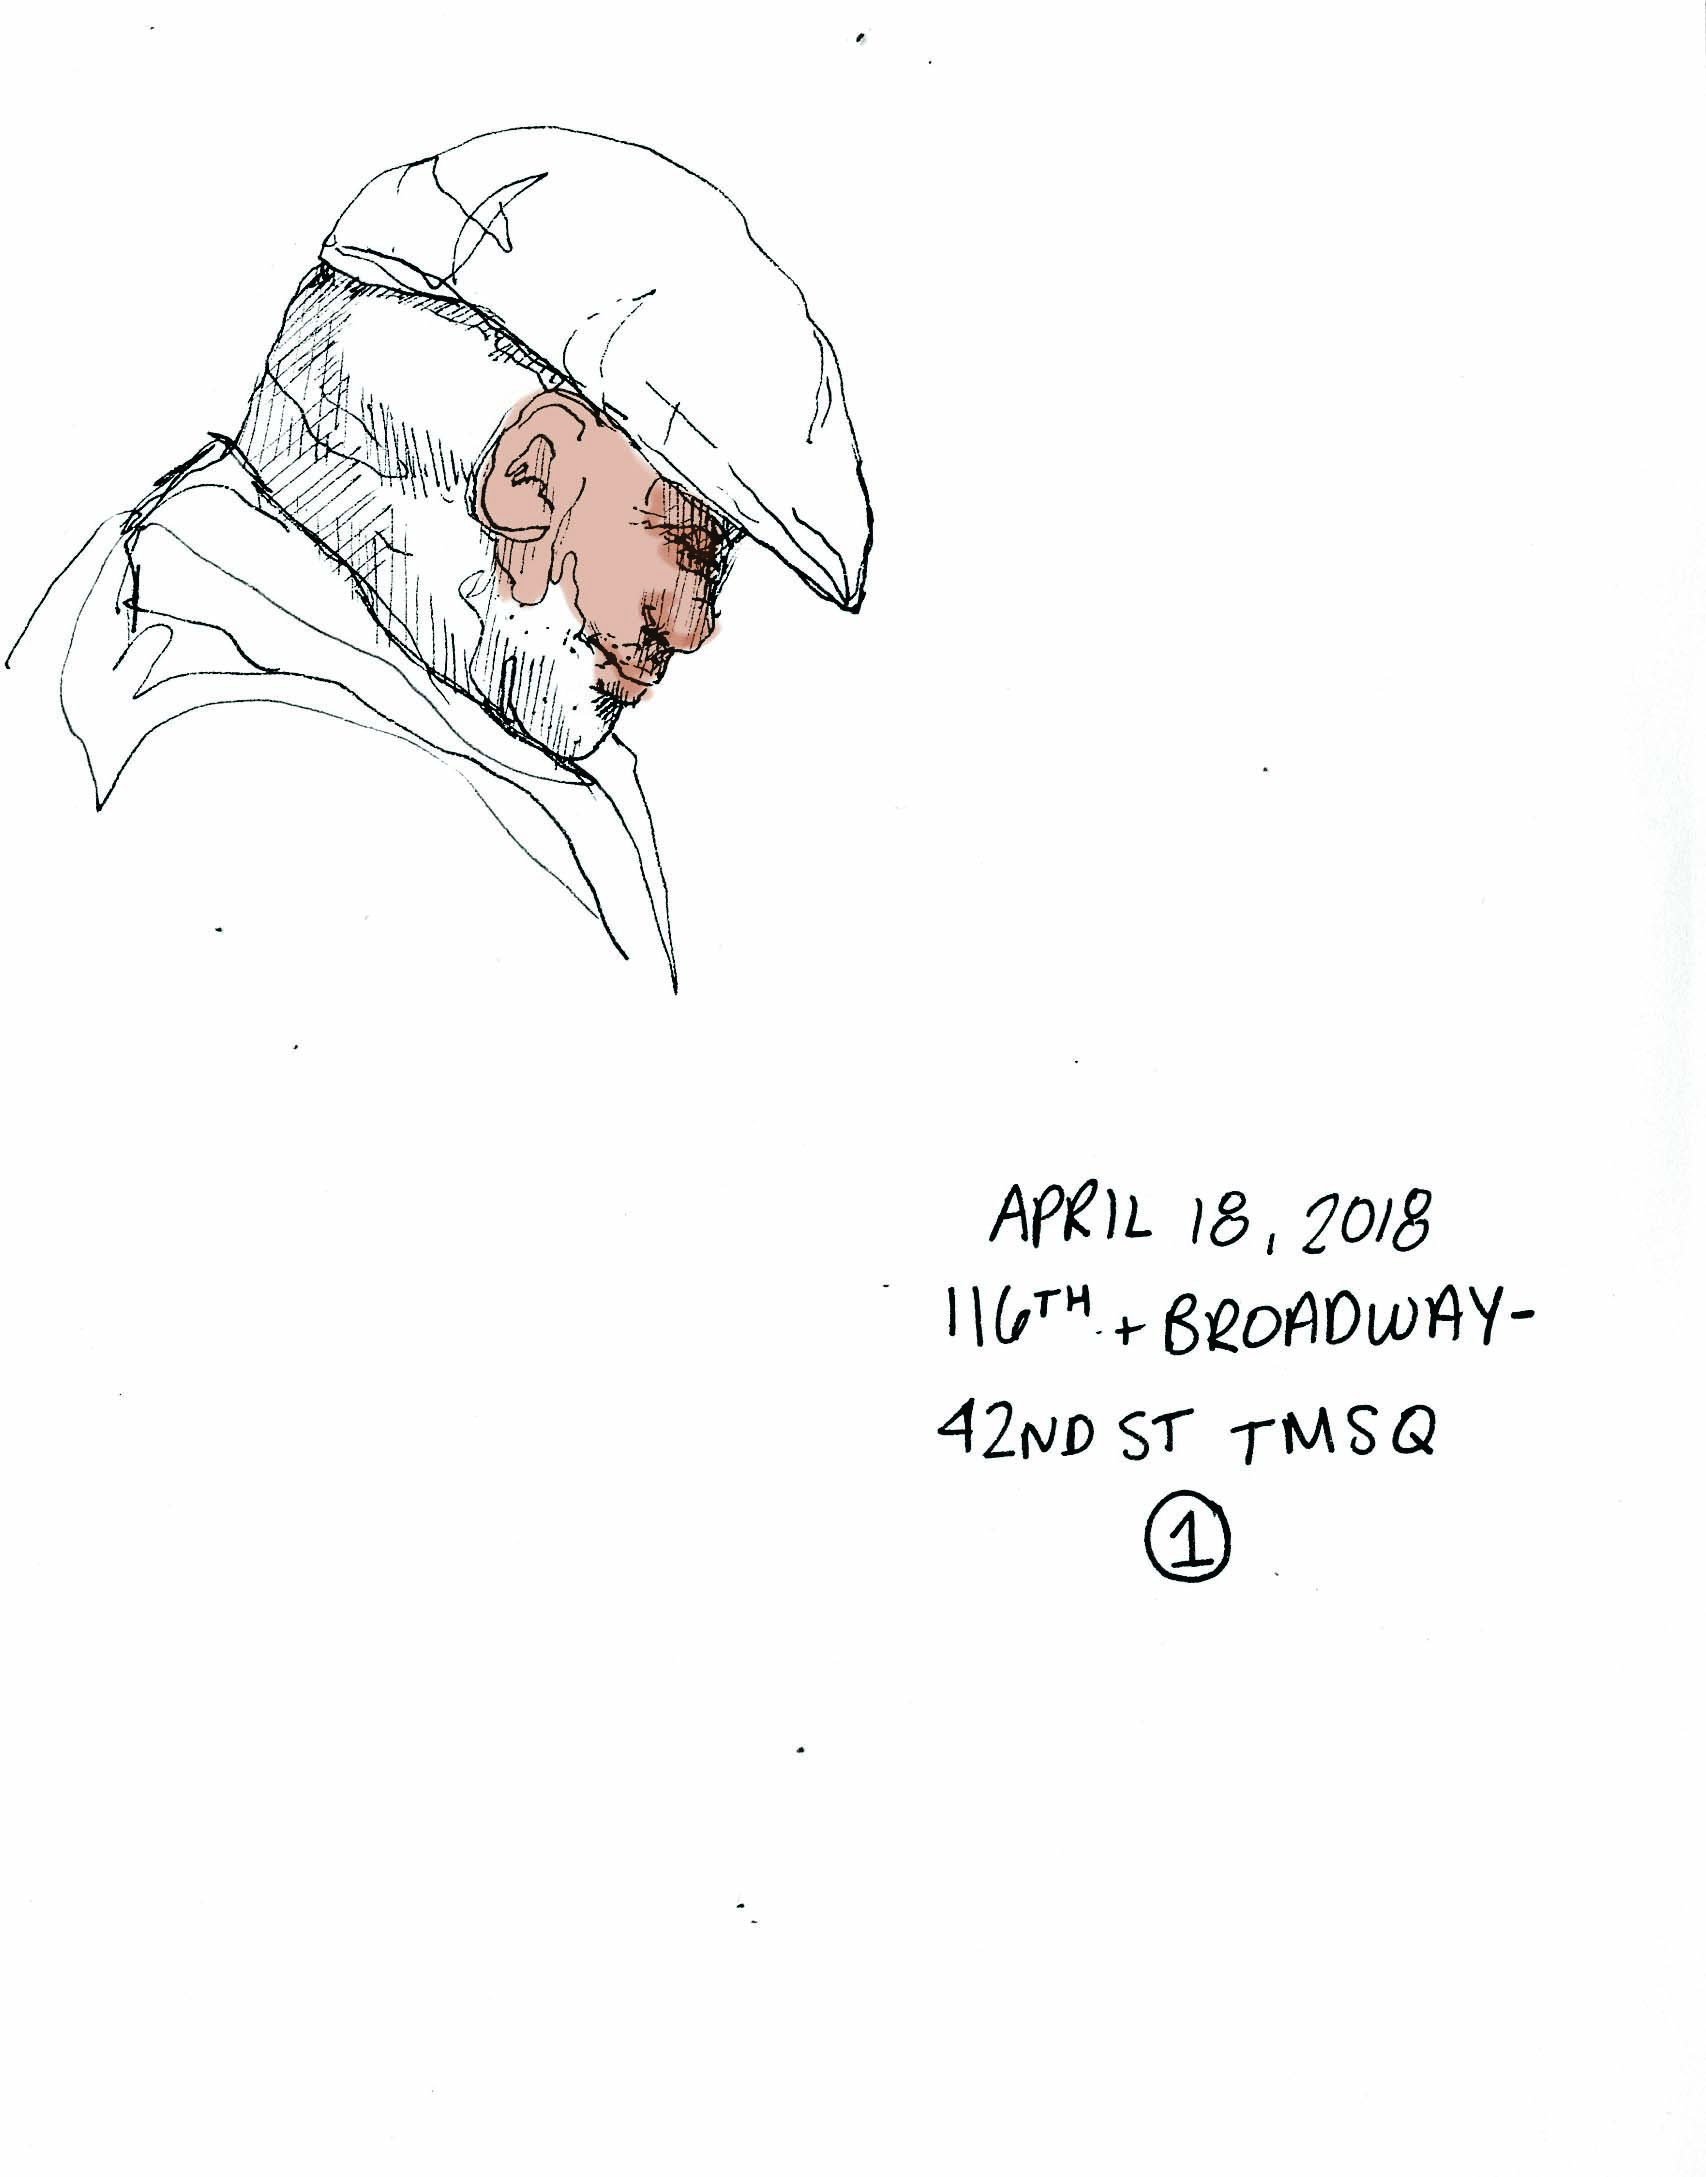 APRIL 18, 2018
116TH + BROADWAY-
42ND ST TMSQ
1